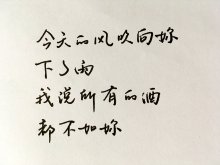 今天的风吹向妳
下了雨
我说所有的酒
都不如妳